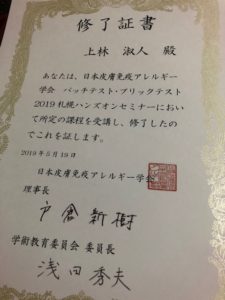 修了証書
上林 淑人 殿
あなたは、日本皮膚免疫アレルギー
学会 パッチテスト・プリックテスト
2019札幌ハンズオンセミナーにおい
て所定の課程を受講し、修了したの
でこれを証します。
2019年5月19日
日本皮膚免疫アレルギー学会
理事長
戸倉 新樹
学術教育委員会 委員長
浅田 秀夫